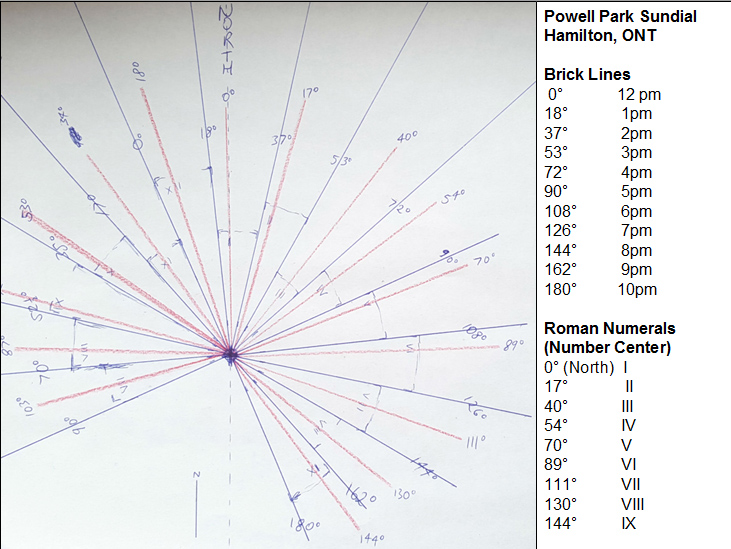 Powell Park Sundial
Hamilton, ONT
Brick Lines
0° 12 pm
18° 1pm
37° 2pm
53° 3pm
72° 4pm
90° 5pm
108° 6pm
126° 7pm
144° 8pm
162° 9pm
180° 10pm
Roman Numerals
(Number Center)
0° (North) I
17° II
40° III
54° IV
70° V
89° VI
111° VII
130° VIII
144° IX
NORTH
18°
0°
17°
0°
18°
37°
53°
40°
72°
54°
90°
70°
53°
108°
89°
87°
70°
103°
90°
126°
111°
144°
162°
130°
180°
144°
N